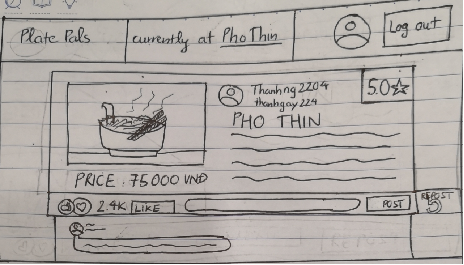 Plate Pals
currently at Pho Thin
Log out
Thanhng2204
thanhgay224
5.0
PHO THIN
PRICE : 75000 VNĐ
2.4K LIKE
POST
REPOST